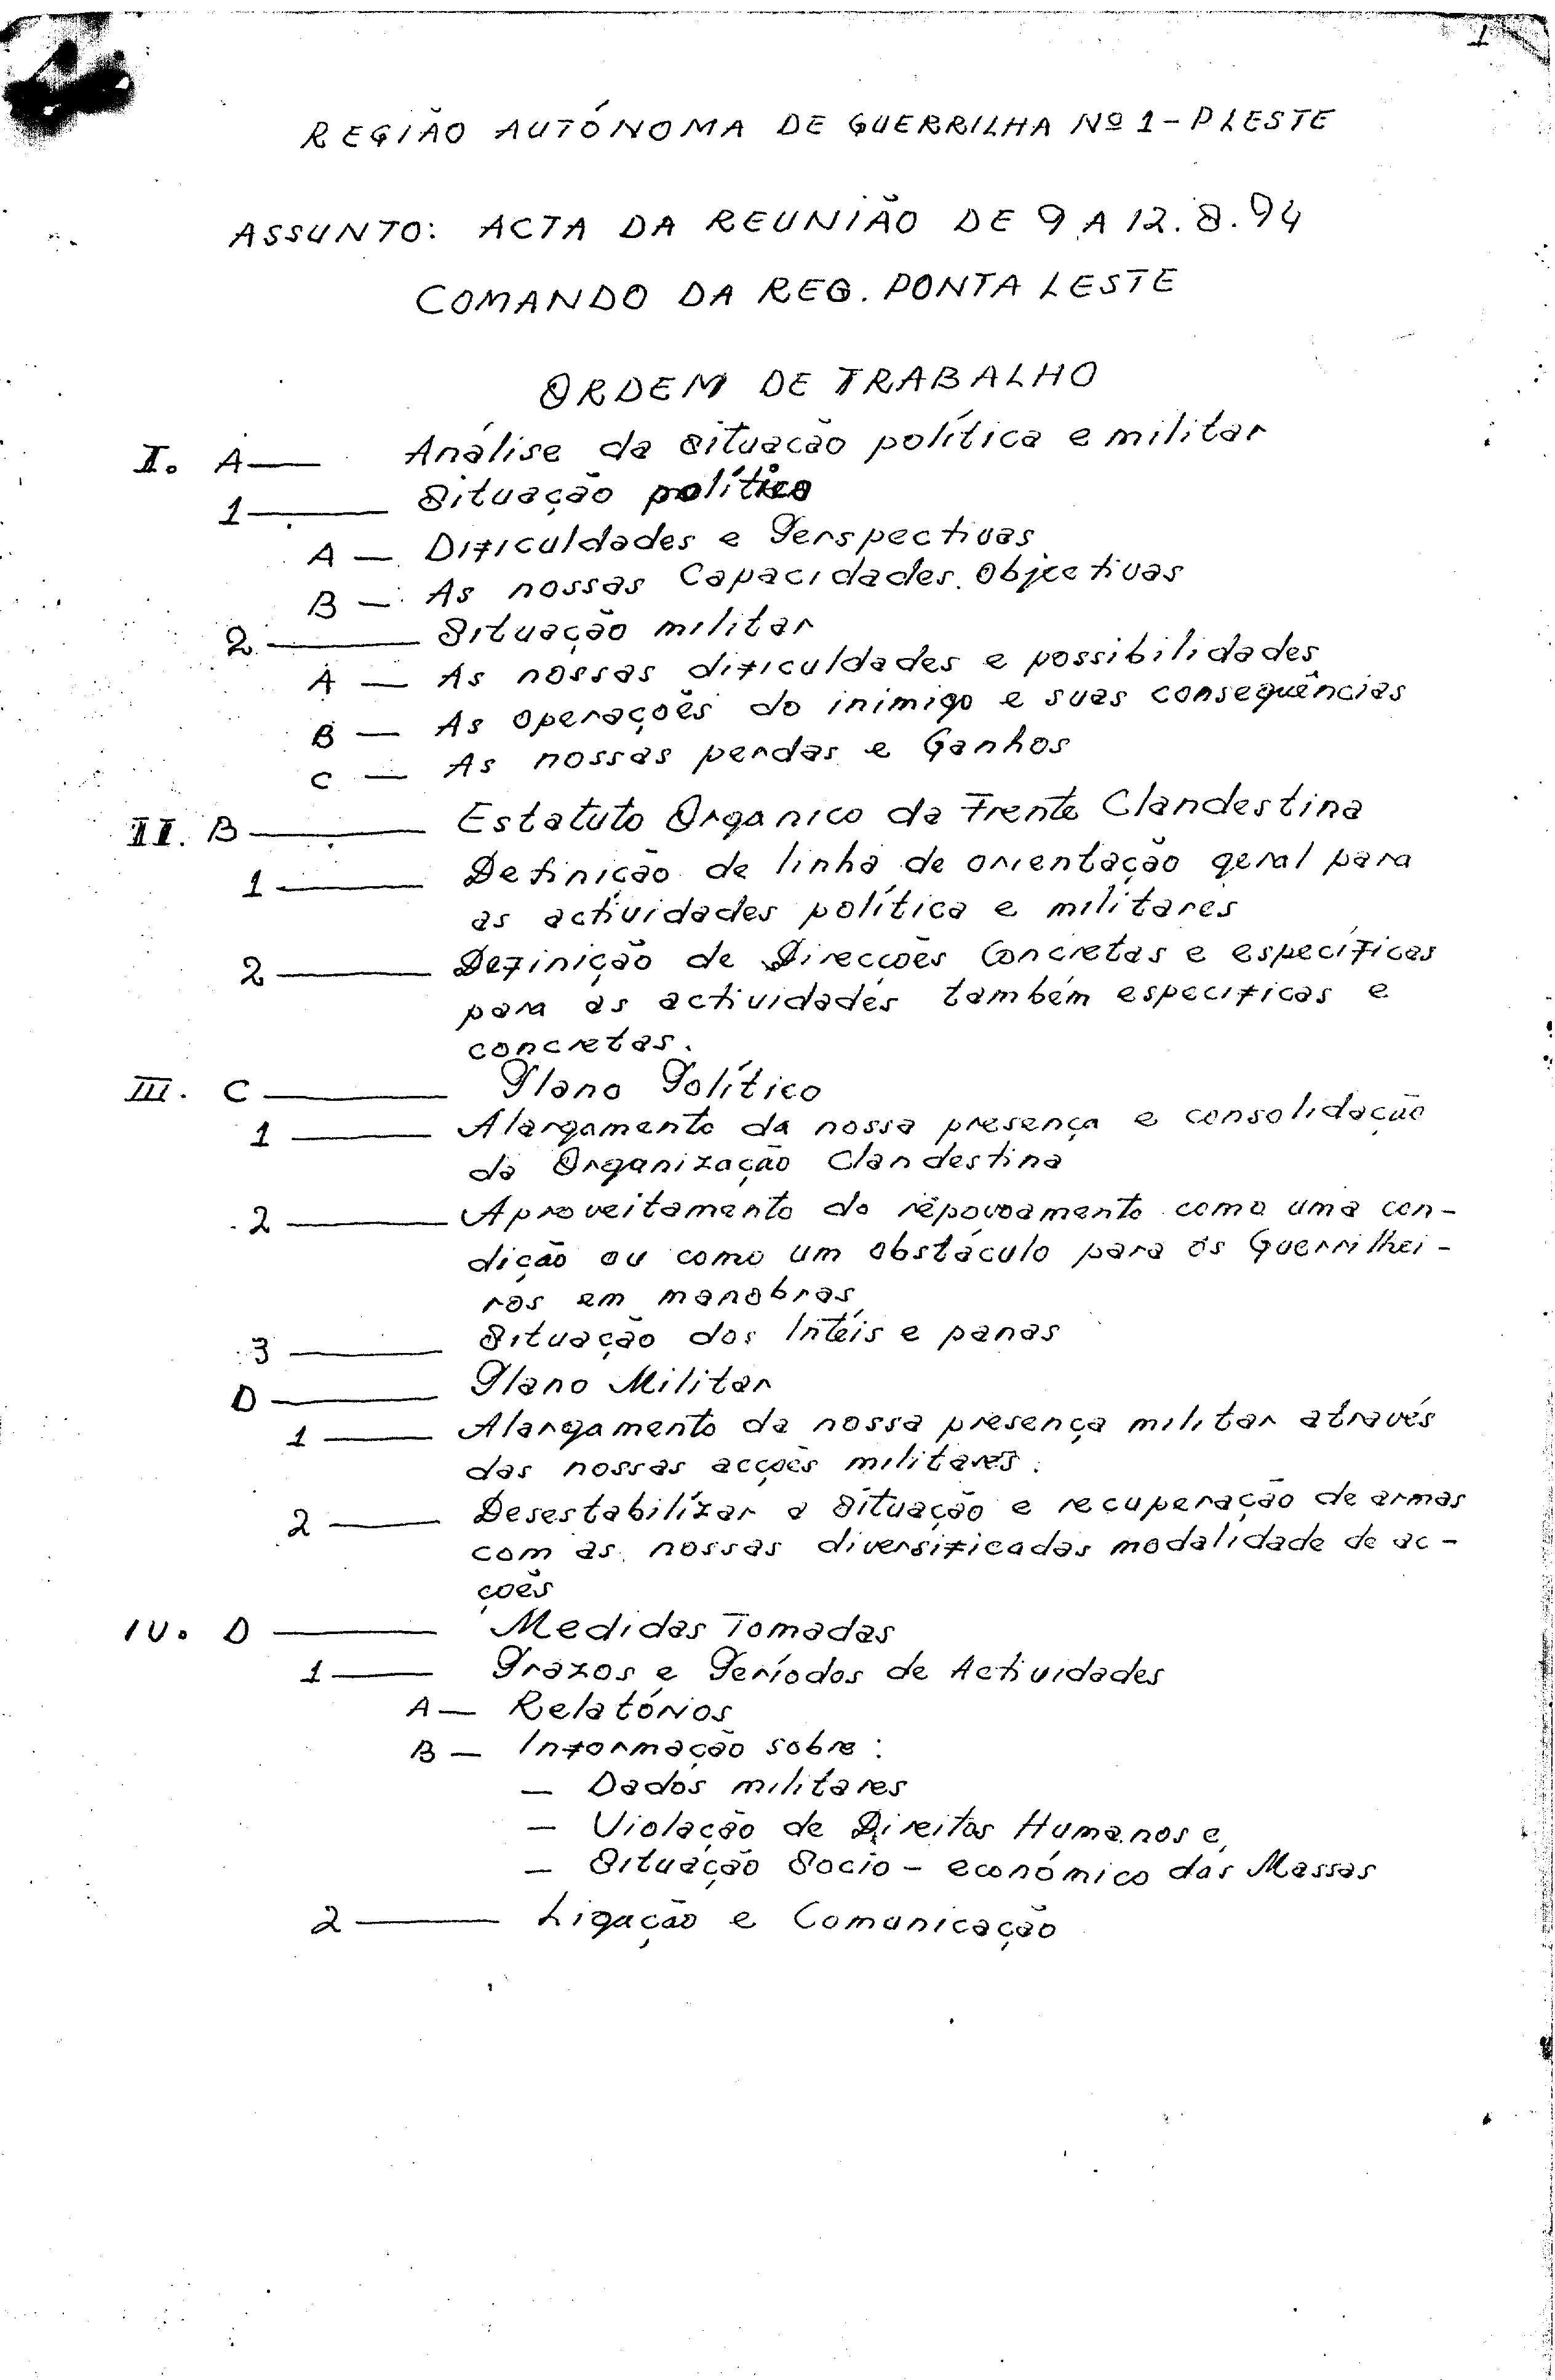 1
REGIÃO AUTÓNOMA DE GUERRILHA Nº 1 - PLESTE
ASSUNTO: ACTA DA REUNIÃO DE 9 A 12.8.94
COMANDO DA REG. PONTA LESTE
ORDEM DE TRABALHO
I. A — Análise da situação política e militar
1 — Situação político
A — Dificuldades e Perspectivas
B — As nossas Capacidades Objectivas
2 — Situação militar
A — As nossas dificuldades e possibilidades
B — As operações do inimigo e suas consequências
C — As nossas perdas e Ganhos
II. B — Estatuto Organico da Frente Clandestina
1 — Definição de linha de orientação geral para
as actividades política e militares
2 — Definição de Direcções Concretas e específicas
para as actividades também especificas e
concretas.
III. C — Plano Político
1 — Alargamento da nossa presença e consolidação
da Organização Clandestina
2 — Aproveitamento do repovoamento como uma con-
dição ou como um obstáculo para os Guerrilhei-
ros em manobras
3 — Situação dos Intéis e panas
D — Plano Militar
1 — Alargamento da nossa presença militar através
das nossas acções militares.
2 — Desestabilizar a situação e recuperação de armas
com as nossas diversificadas modalidade de ac-
ções
IV. D — Medidas Tomadas
1 — Prazos e Períodos de Actividades
A — Relatórios
B — Informação sobre:
— Dados militares
— Violação de Direitos Humanos e,
— Situação Socio-económico das Massas
2 — Ligação e Comunicação